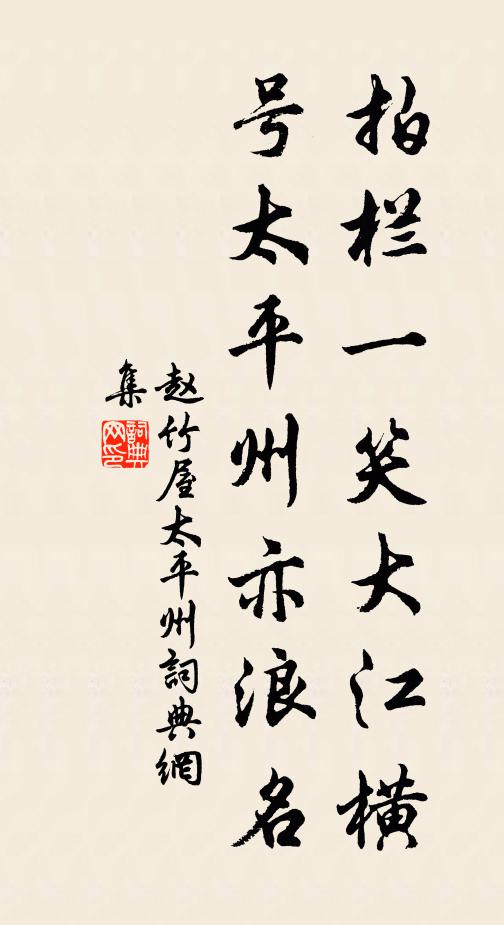 拍栏一笑大江横
号太平州亦浪名
赵竹屋太平州詞典網
集
詞典网印